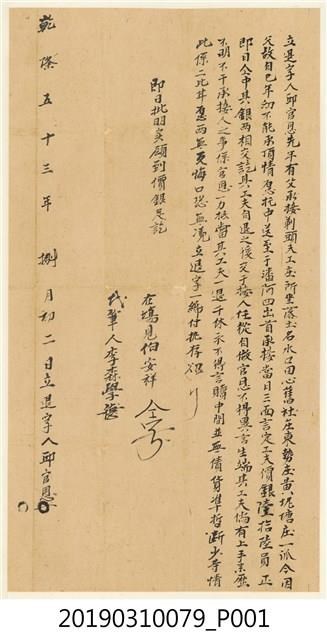 立退字人邱官恩先年有父承接剃頭工夫壹所坐落土名水口田心舊社庄東勢庄黃坭塘庄一派今因
父故自己年幼不能承頂情愿托中送至于潘阿四出首承接當日三面言定工夫價銀陸拾陸員正
即日仝中其銀兩相交訖其工夫自退之後交于接人任從自做官恩不得異言生端其工夫倘有上手來歷
不明不干承接人之事係官恩一力抵當其工夫一退千休示不得言贖中間並無債貨準折断少等情
此係二比甘愿兩無反悔口恐無凴立退字一紙付執存炤
即日批明實領到價銀足訖
在塲見伯安祥
代筆人李森學
乾隆五十三年捌月初二日立退字人邱官恩
20190310079_P001